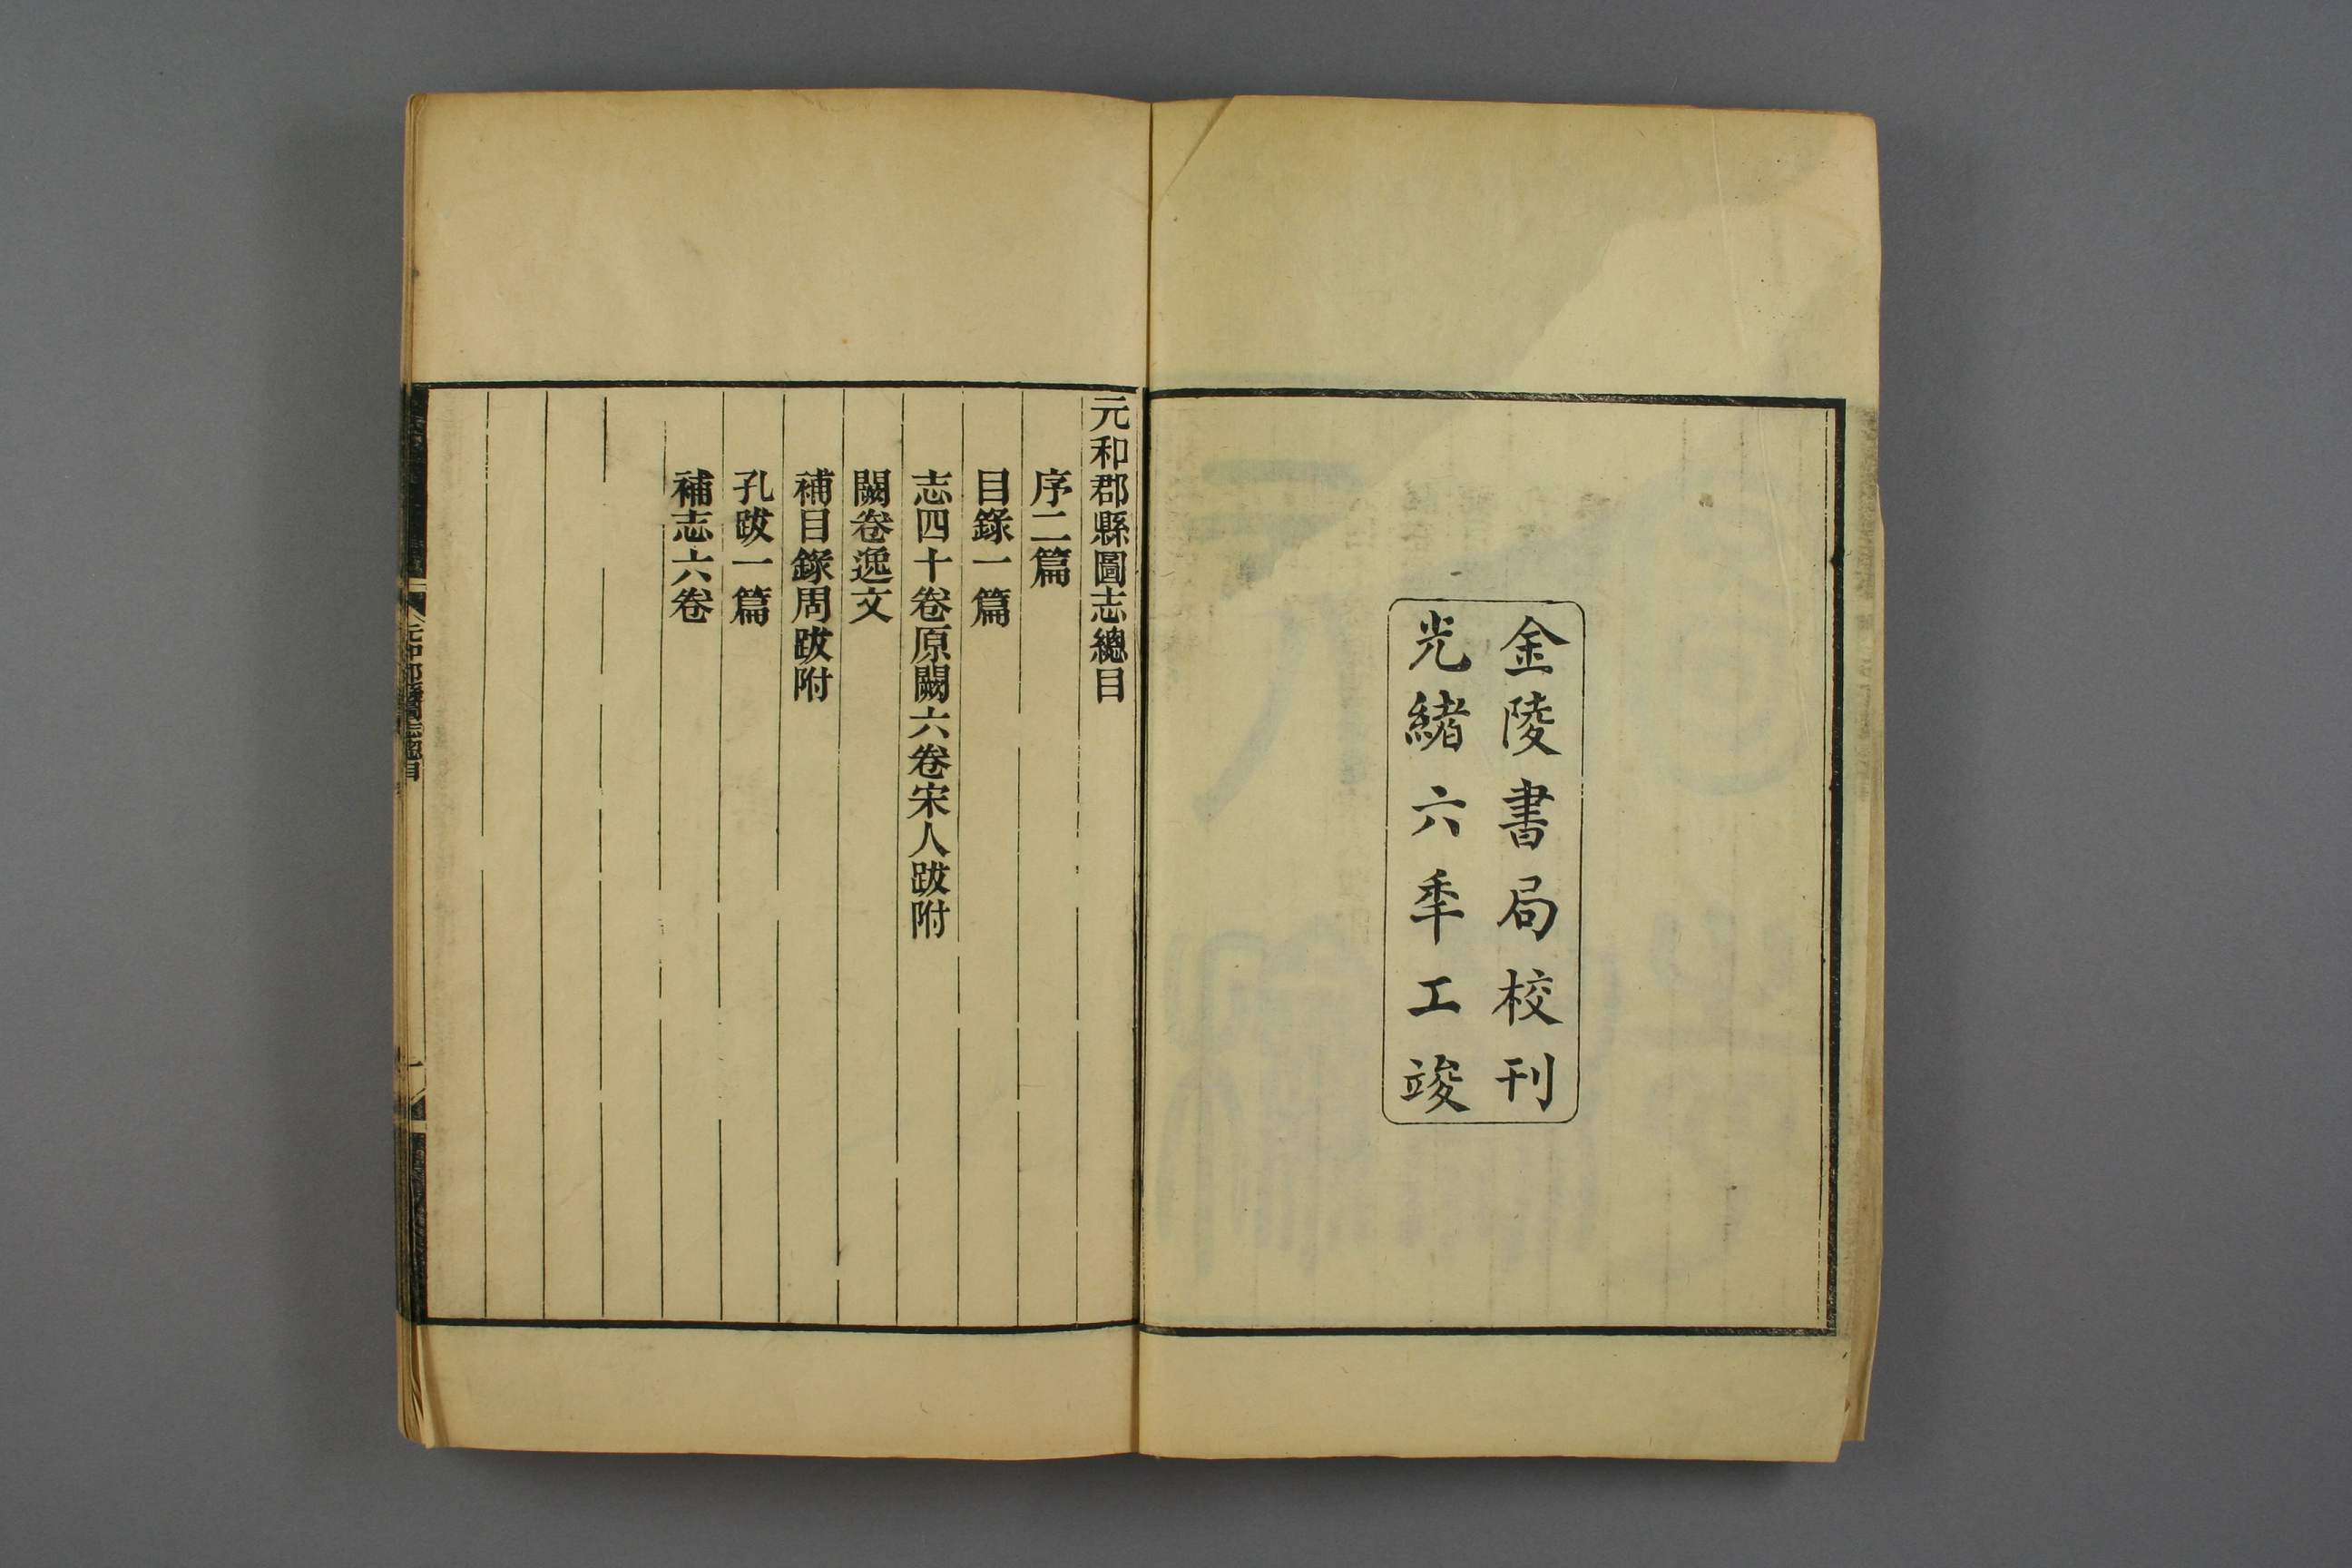 金陵書局校刊
光緒六秊工竣
元和郡縣圖志總目
序二篇
目錄一篇
志四十卷原闕六卷宋人跋附
闕卷逸文
補目錄周跋附
孔跋一篇
補志六卷
元和郡縣圖志總目